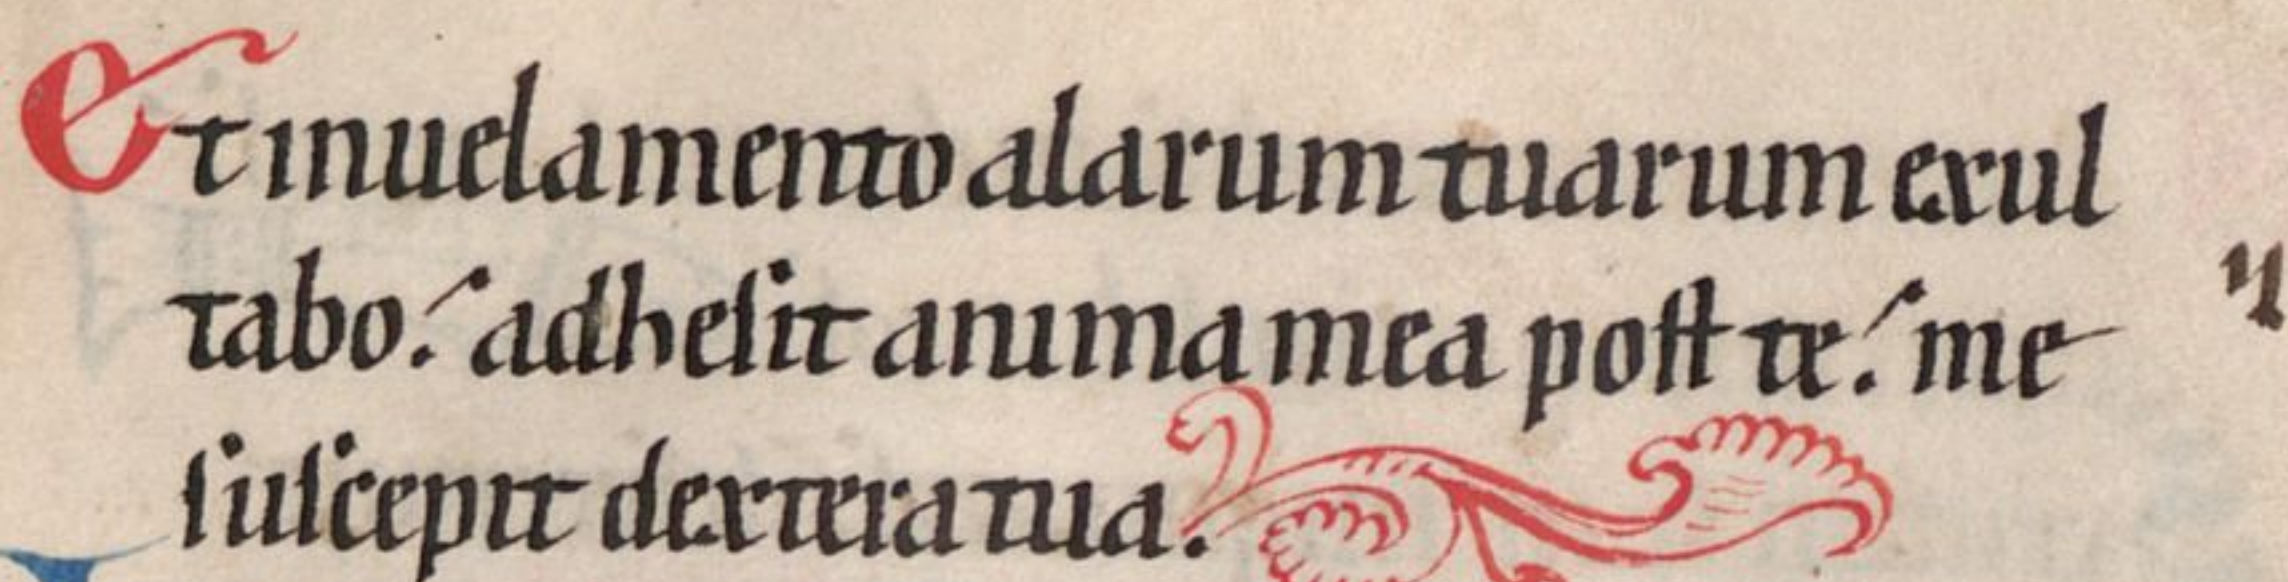 Et inuelamento alarum tuarum exul
tabo: adhesit anima mea post te: me
suscepit dextera tua.